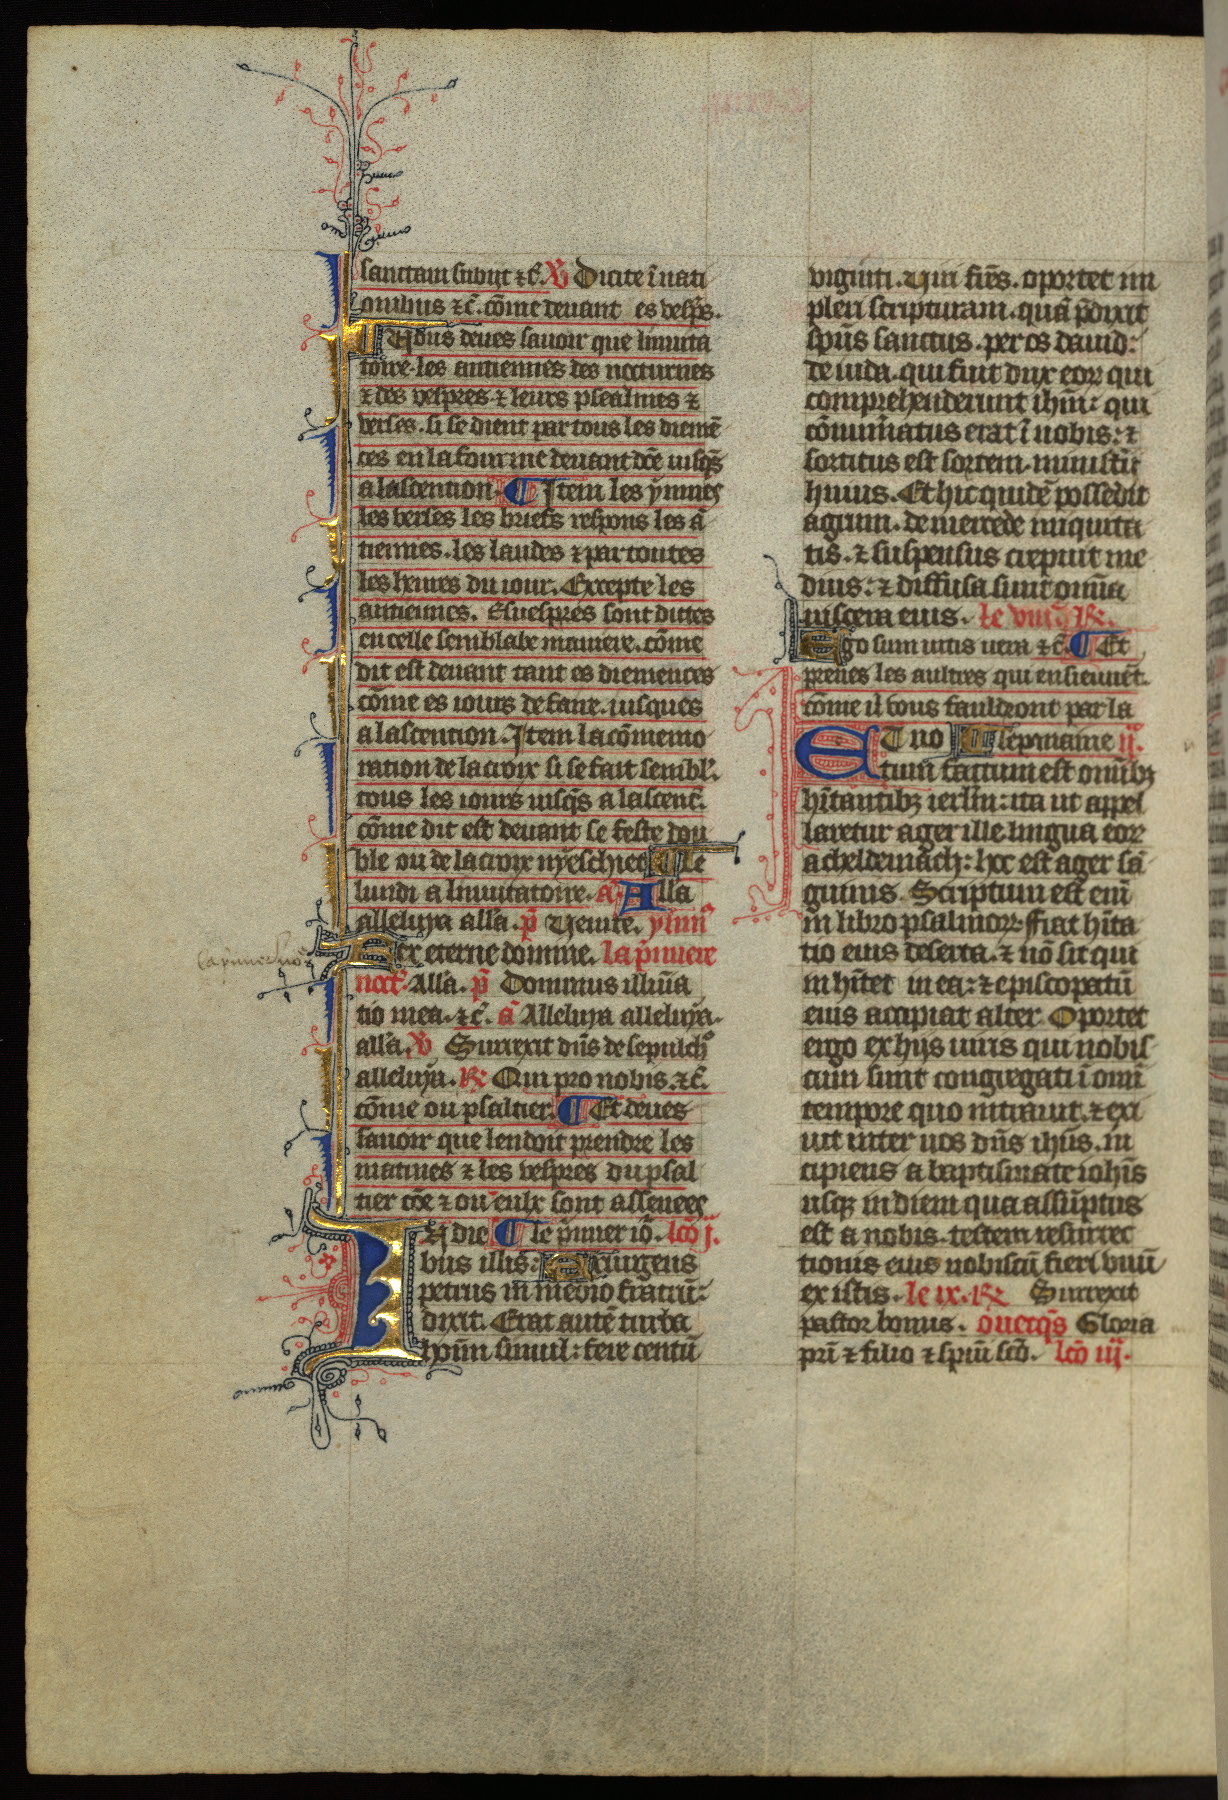 sanctam subiit ⁊ c̃. ℣ Dicite ĩ nati
onibus ⁊c̃. cõme deuant es vesp̃s.
Uous deues sauoir que linuita
toire. les antiennes des nocturnes
⁊ des vespres ⁊ leurs psealmes ⁊
verses. si se dient par tous les diemẽ
ces en la fourme deuant dc̃e iusq̃s
a lascention. ¶ Item les ỹmnes
les verses les briefs respons les ã
tiennes. les laudes ⁊ par toutes
les heures du iour. Excepte les
antiennes. Es vespres sont dittes
en celle semblable maniere. cõme
dit est deuant tant es diemences
cõme es iours de faire. iusques
a lascention. Item la cõmemo
ration de la croix si se fait sembl̃.
tous les iours iusq̃s a lascenc̃.
cõme dit est deuant se feste dou
ble ou de la croix ny eschiet ¶ Le
lundi a linuitatoire. ã Alla
alleluya all'a. p̃ Venite. ymñ
Rex eterne domine. La p̃miere
noct̃. All'a. p̃ Dominus illuĩa
tio mea. ⁊c̃. ã Alleluya alleluya.
all'a. ℣ Surrexit dñs de sepulchͦ
alleluya. ℟ Qui pro nobis. ⁊c̃.
cõme ou psaltier. ¶ Et deues
sauoir que len doit prendre les
matines ⁊ les vespres du psal
tier cõe ⁊ ou eulx sont assenees
IN die ¶ le p̃mier iõ. lcõ j.
bus illis: Exurgens
petrus in medio fratrũ:
dixit. Erat autẽ turba
hoĩm simul: fere centũ
viginti. Uiri fr̃es. oportet im
pleri scripturam. quã p̃dixit
sp̃us sanctus. per os dauid:
de iuda. qui fuit dux eoꝝ qui
comprehenderunt ihm̃: qui
cõnumatus erat ĩ nobis: ⁊
sortitus est sortem. ministĩi
huius. Et hic quidẽ possedit
agrum. de mercede iniquita
tis. ⁊ suspensus crepuit me
dius: ⁊ diffusa sunt omĩa
uiscera eius. le viii ℟.
Ego sum uitis uera ⁊c̃. ¶ Et
prenes les aultres qui ensieuuẽt.
cõme il vous fauldront par la
ET no ¶ sepmaine ij.
tum factum est omĩbꝫ
hĩtantibꝫ ierl̃m: ita ut appel
laretur ager ille lingua eoꝝ
acheldemach: hoc est ager sã
guinis. Scriptum est enĩ
in libro psalmoꝝ: ffiat hĩta
tio eius deserta. ⁊ nõ sit qui
inhĩtet in ea: ⁊ episcopatũ
eius accipiat alter. Oportet
ergo ex hijs uiris qui nobis
cum sunt congregati ĩ omĩ
tempore quo intrauit. ⁊ exi
uit inter nos dñs ihũs. in
cipiens a baptismate ioh̃is
usqꝫ in diem qua assũptus
est a nobis. testem resurrec
tionis eius nobiscũ fieri vnũ
ex istis. le ix. ℟ Surrexit
pastor bonus. ouecq̃s Gloria
pr̃i ⁊ filio ⁊ sp̃iũ sc̃o. lcõ iij.